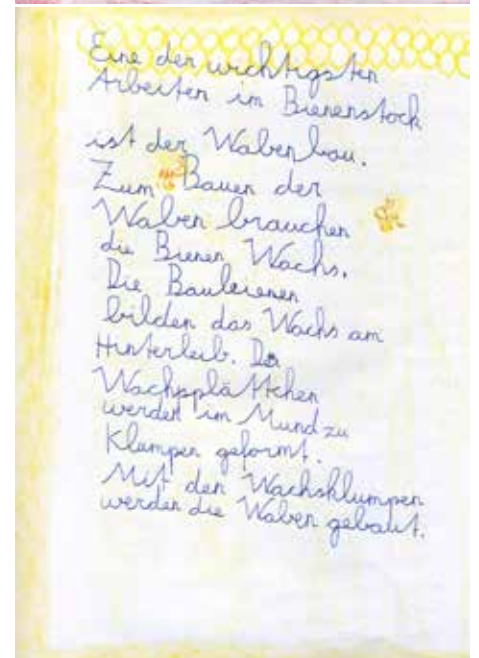 Eine der wichtigsten
Arbeiten im Bienenstock
ist der Wabenbau.
Zum Bauen der
Waben brauchen
die Bienen Wachs.
Die Baubienen
bilden das Wachs am
Hinterleib. Die
Wachsplättchen
werden im Mund zu
Klumpen geformt.
Mit den Wachsklumpen
werden die Waben gebaut.